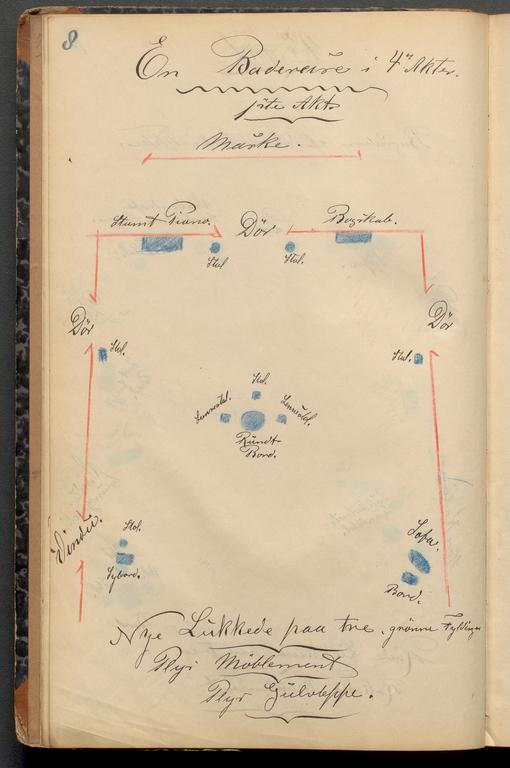 8
En Badereise i 4re Akter.
1ste Akt
Mörke.
Stumt Piano.
Dör
Bogskab.
Stol
Stol.
Dör
Dör
Stol.
Stol.
Stol.
Lænestol.
Lænestol.
Rundt
Bord.
Vindu.
Stol.
Sybord.
Sofa.
Bord.
Nye Lukkede paa tre, grönne Fyldinger
Plys Möblement
Plys Gulvteppe.